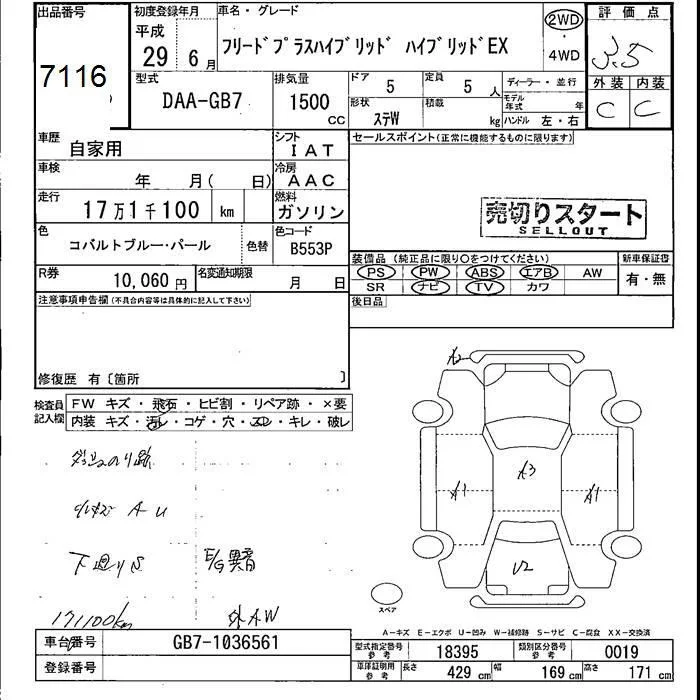 出品番号 初度登録年月 車名・グレード 評価点
7116 平成 29 6月 フリードプラスハイブリッド ハイブリッドEX 2WD ・ 4WD 3.5
型式 DAA-GB7 排気量 1500 CC ドア 5 定員 5 人 ディーラー・並行 外装 内装
形状 ステW 積載 kg モデル年式 年 ハンドル 左・右 C C
車歴 自家用 シフト IAT セールスポイント(正常に機能するものに限ります)
車検 年 月( 日) 冷房 AAC
走行 17万1千100 km 燃料 ガソリン 売切りスタート
SELLOUT
色 コバルトブルー・パール 色替 色コード B553P
装備品 (純正品に限り○をつけてください) 新車保証書
R券 10,060円 名変通知期限 月 日 PS PW ABS エアB AW 有・無
SR ナビ TV カワ
注意事項申告欄(不具合内容等は具体的に記入して下さい) 後日品
修復歴 有〔箇所 〕
検査員記入欄 FW キズ・飛石・ヒビ割・リペア跡・×要
内装 キズ・汚レ・コゲ・穴・スレ・キレ・破レ
A2
ダッシュのり跡
A3
A1 A1
A U
下廻りS E/G異音
U2
171100km 外AW
スペア
A-キズ E-エクボ U-凹み W-補修跡 S-サビ C-腐食 XX-交換済
車台番号 GB7-1036561 型式指定番号 参考 18395 類別区分番号 参考 0019
登録番号 車庫証明用 参考 長さ 429 cm 幅 169 cm 高さ 171 cm